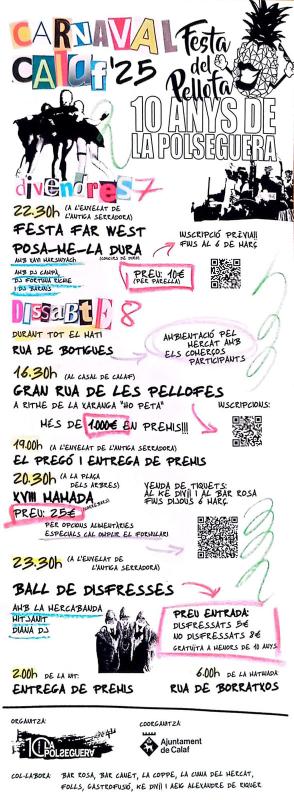 CARNAVAL
CALAF '25
Festa
del
Pellofa
10 ANYS DE
LA POLSEGUERA
divendres 7
22.30h (A L'ENVELAT DE
L'ANTIGA SERRADORA)
FESTA FAR WEST
POSA-ME-LA DURA
(CONCURS DE DURO)
AMB XAVI MARSINYACH
AMB DJ CAMPA,
DJ FORTUNA RICHE
I DJ BARIUS
INSCRIPCIÓ PRÈVIA!!
FINS AL 6 DE MARÇ
PREU: 10€
(PER PARELLA)
DISSABTE 8
DURANT TOT EL MATÍ
RUA DE BOTIGUES
AMBIENTACIÓ PEL
MERCAT AMB
ELS COMERÇOS
PARTICIPANTS
16.30h (AL CASAL DE CALAF)
GRAN RUA DE LES PELLOFES
A RITME DE LA XARANGA "HO PETA"
INSCRIPCIONS:
MÉS DE 1.000€ EN PREMIS!!!
19.00h (A L'ENVELAT DE L'ANTIGA SERRADORA)
EL PREGÓ I ENTREGA DE PREMIS
20.30h (A LA PLAÇA
DELS ARBRES)
XVIII MAMADA
PREU: 25€
PER OPCIONS ALIMENTÀRIES
ESPECIALS CAL OMPLIR EL FORMULARI
VENDA DE TIQUETS:
AL KE DIV!! I AL BAR ROSA
FINS DIJOUS 6 MARÇ
23.30h (A L'ENVELAT DE
L'ANTIGA SERRADORA)
BALL DE DISFRESSES
AMB LA MERCABANDA
MITJANIT
DIANA DJ
PREU ENTRADA:
DISFRESSATS 5€
NO DISFRESSATS 8€
GRATUÏTA A MENORS DE 10 ANYS
2.00h DE LA NIT:
ENTREGA DE PREMIS
6.00h DE LA MATINADA
RUA DE BORRATXOS
ORGANITZA:
10 LA
POLSEGUERA
COORGANITZA:
Ajuntament
de Calaf
COL·LABORA: BAR ROSA, BAR CANET, LA COPPE, LA CUINA DEL MERCAT,
FOLLS, GASTROFUSIÓ, KE DIV!! I AEIG ALEXANDRE DE RIQUER